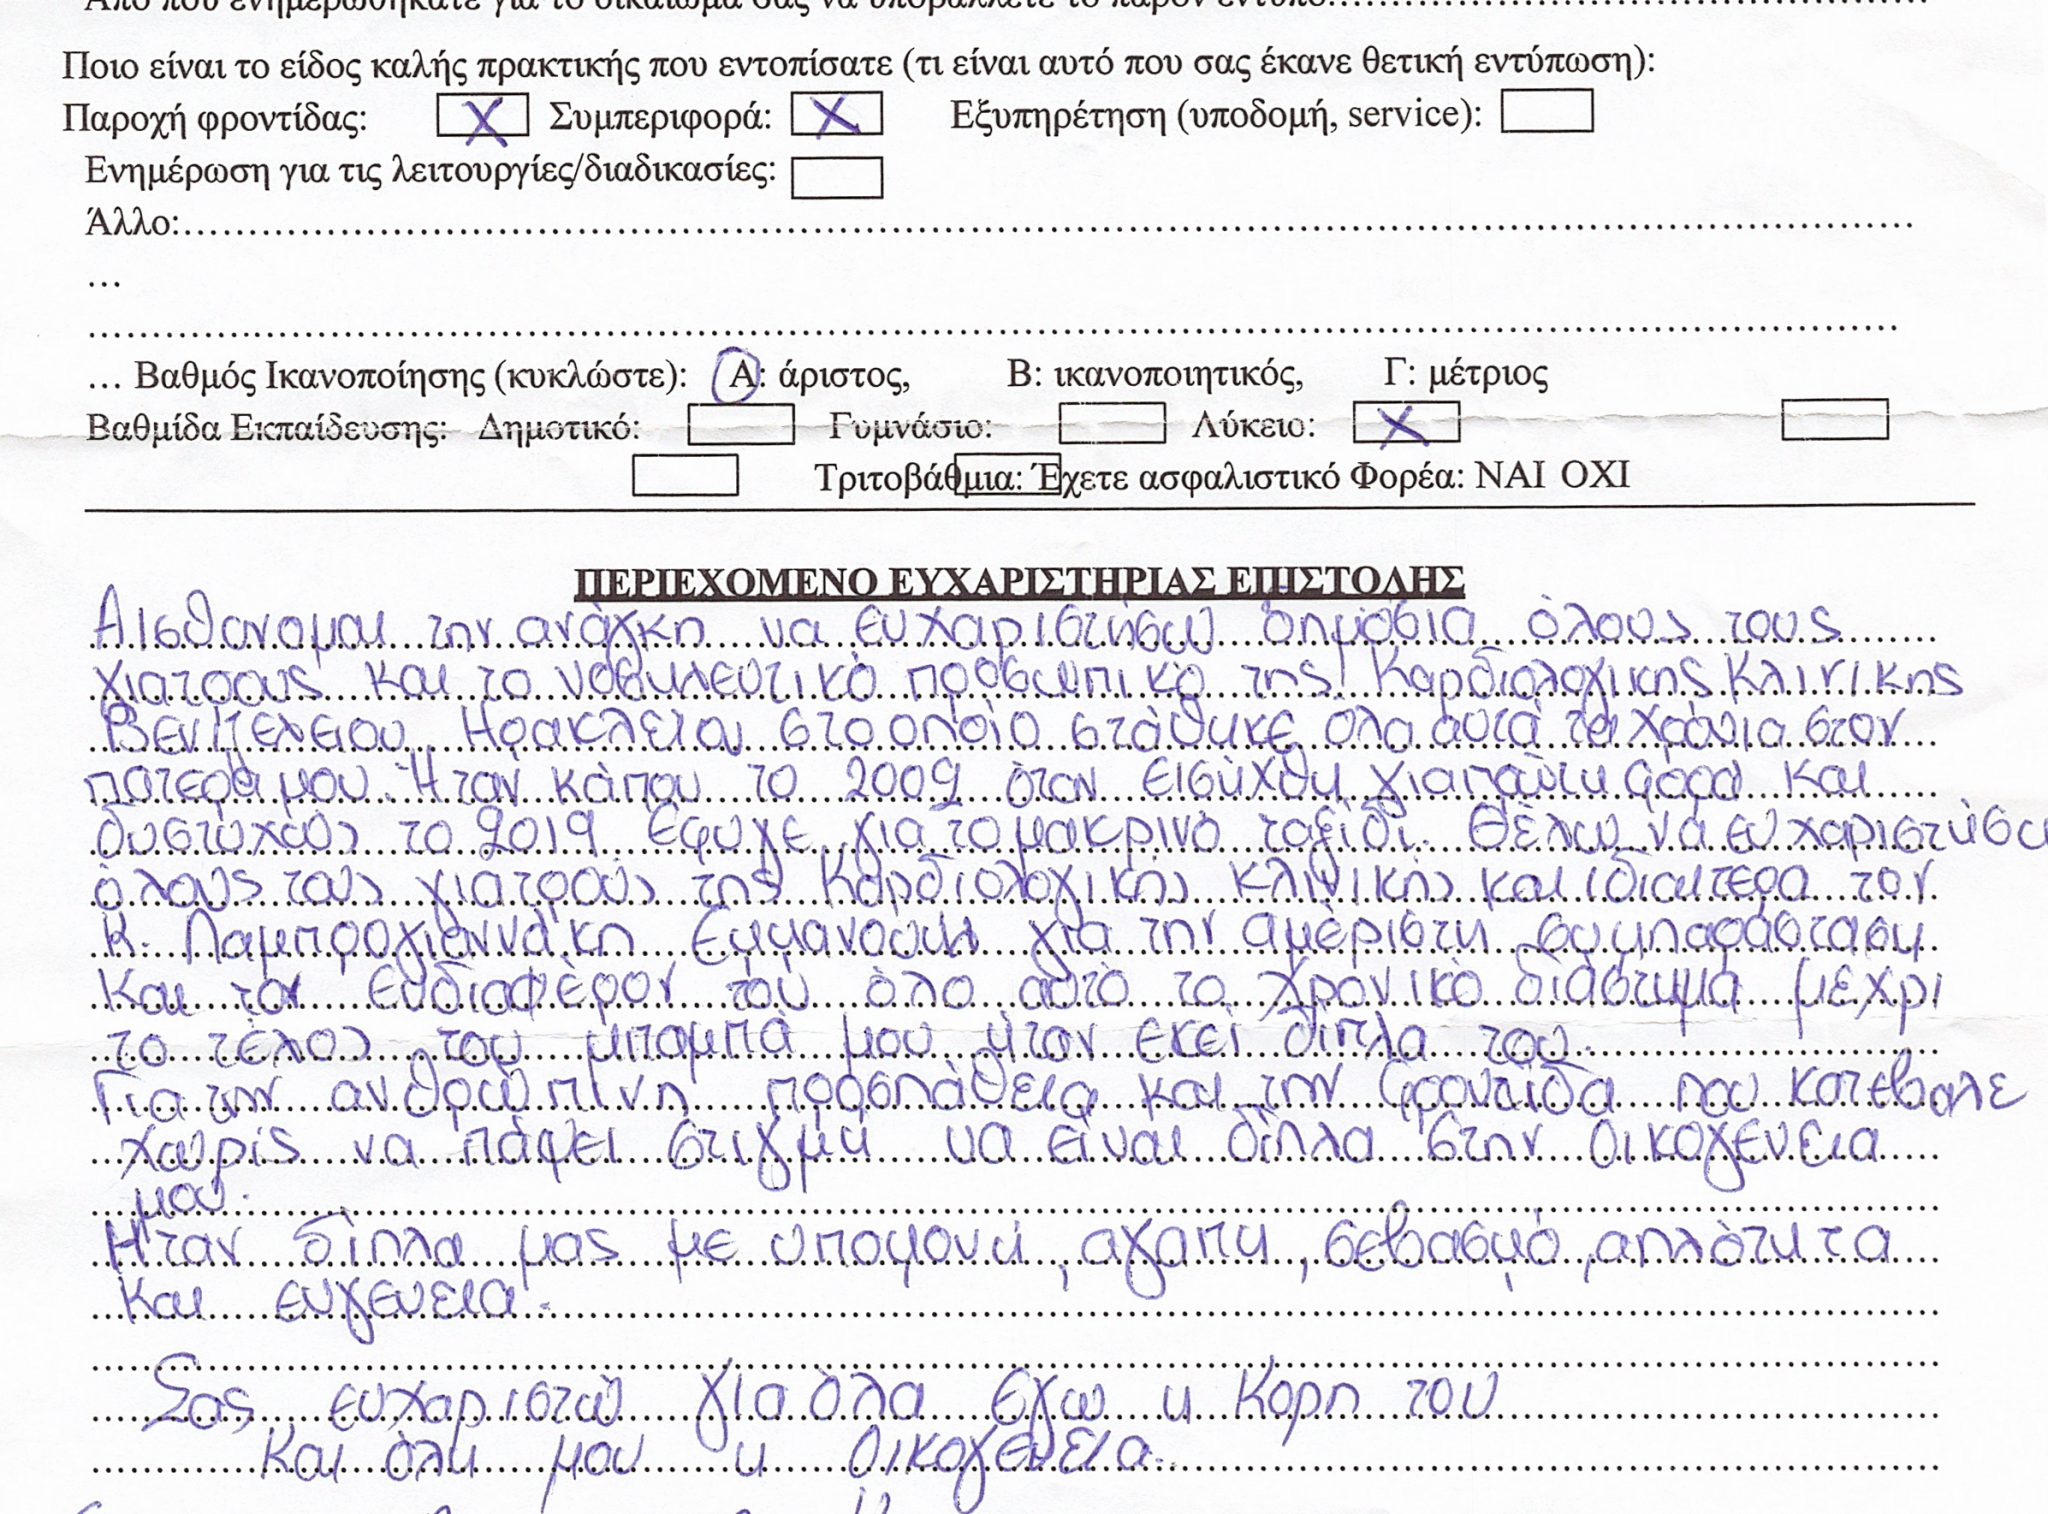 Από πού ενημερωθήκατε για το δικαίωμά σας να υποβάλλετε το παρόν έντυπο:..........
Ποιο είναι το είδος καλής πρακτικής που εντοπίσατε (τι είναι αυτό που σας έκανε θετική εντύπωση):
Παροχή φροντίδας: X Συμπεριφορά: X Εξυπηρέτηση (υποδομή, service):
Ενημέρωση για τις λειτουργίες/διαδικασίες:
Άλλο:..........
...
..........
... Βαθμός Ικανοποίησης (κυκλώστε): Α: άριστος, Β: ικανοποιητικός, Γ: μέτριος
Βαθμίδα Εκπαίδευσης: Δημοτικό: Γυμνάσιο: Λύκειο: X
Τριτοβάθμια: Έχετε ασφαλιστικό Φορέα: ΝΑΙ ΟΧΙ
ΠΕΡΙΕΧΟΜΕΝΟ ΕΥΧΑΡΙΣΤΗΡΙΑΣ ΕΠΙΣΤΟΛΗΣ
Αισθανομαι την ανάγκη να ευχαριστήσω δημόσια όλους τους
γιατρους και το νοσηλευτικό προσωπικό της Καρδιολογικης Κλινικης
Βενιζελειου Ηρακλειου στο οποίο στάθηκε όλα αυτά τα χρόνια στον
πατερα μου. Ήταν κάπου το 2009 όταν εισήχθη για πρώτη φορα και
δυστυχώς το 2019 εφυγε για το μακρινό ταξίδι. Θέλω να ευχαριστήσω
όλους τους γιατρούς της Καρδιολογικής κλινικής και ιδιαιτερα τον
κ. Λαμπρογιαννάκη Εμμανουήλ για την αμέριστη συμπαράσταση
και τον ενδιαφέρον του όλο αυτό το χρονικό διάστημα μεχρι
το τέλος του μπαμπά μου ήταν εκεί δίπλα του.
Για την ανθρωπινη προσπάθεια και την φροντίδα που κατεβαλε
χωρίς να πάψει στιγμή να είναι δίπλα στην οικογένεια
μου.
Ηταν δίπλα μας με υπομονή, αγαπη, σεβασμό, απλότητα
και ευγενεια.
Σας ευχαριστώ για όλα εγω η κορη του
και όλη μου η οικογένεια.